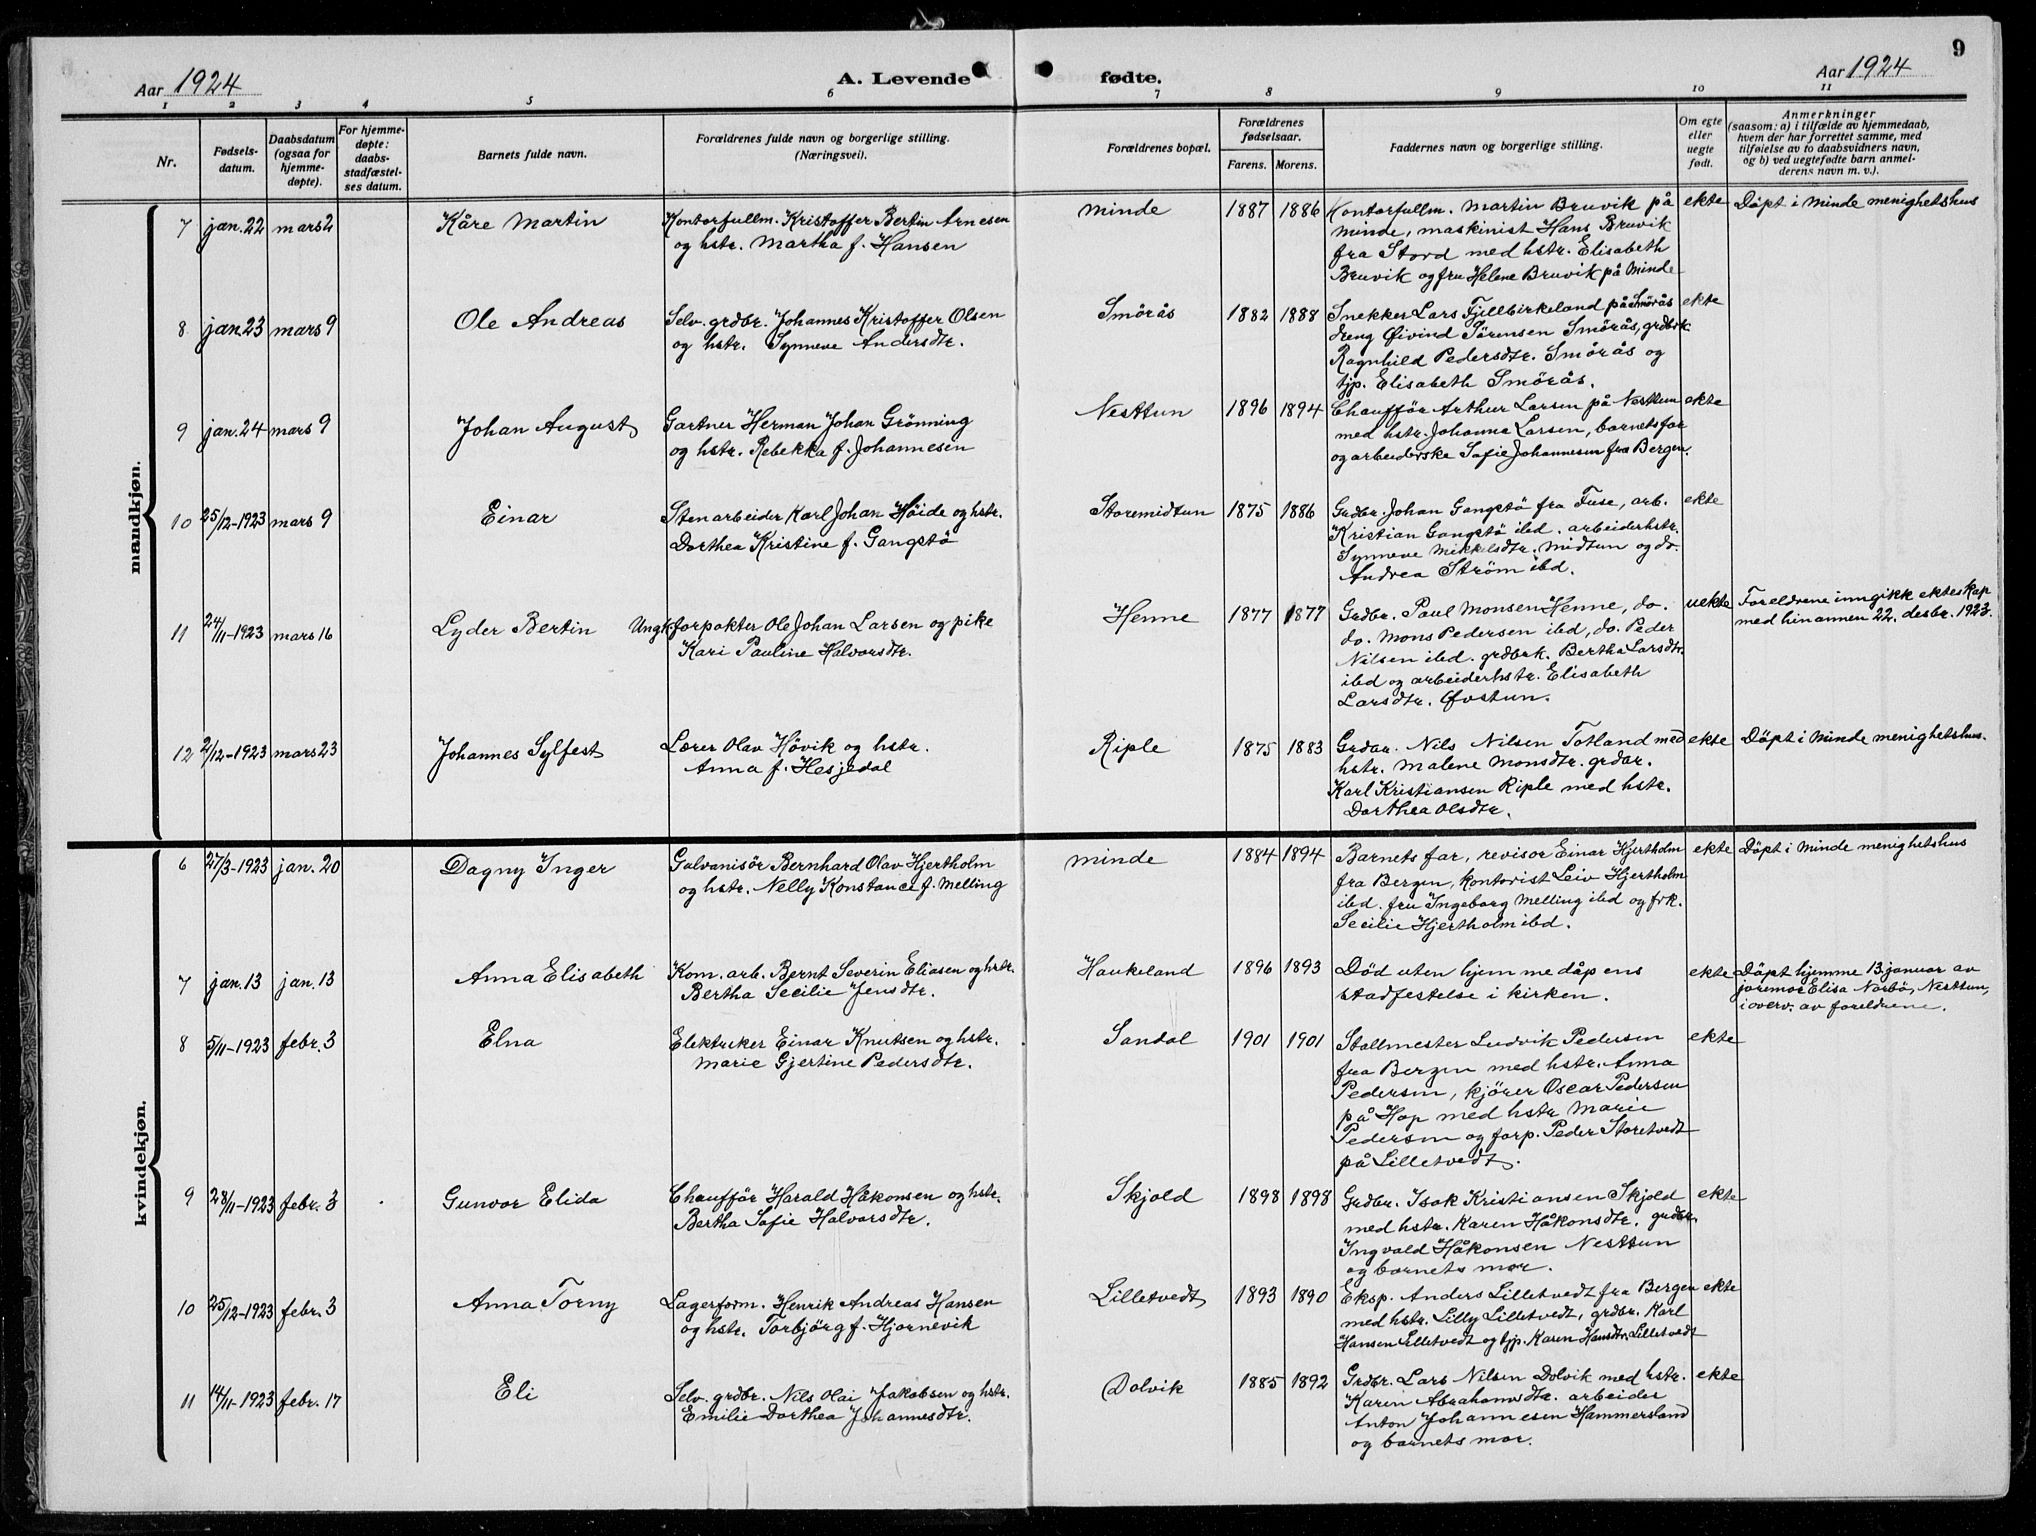 9
Aar 1924
A. Levende
fødte.
Aar 1924
1 2 3 4 5 6 7 8 9 10 11
Nr.
Fødsels-
datum.
Daabsdatum
(ogsaa for
hjemme-
døpte).
For hjemme-
døpte:
daabs-
stadfæstel-
ses datum.
Barnets fulde navn.
Forældrenes fulde navn og borgerlige stilling.
(Næringsvei).
Forældrenes bopæl.
Forældrenes
fødselsaar.
Farens. Morens.
Faddernes navn og borgerlige stilling.
Om egte
eller
uegte
født.
Anmerkninger
(saasom: a) i tilfælde av hjemmedaab,
hvem der har forrettet samme, med
tilføielse av to daabsvidners navn,
og b) ved uegtefødte barn anmel-
derens navn m. v.).
mandkjøn.
7 jan. 22 mars 2 Kåre Martin
Kontorfullm. Kristoffer Bertin Arnesen
og hstr. Martha f. Hansen
Minde 1887 1886
Kontorfullm. Martin Bruvik på
Minde, maskinist Hans Bruvik
fra Stord med hstr. Elisabeth
Bruvik og fru Helene Bruvik på Minde
ekte Döpt i Minde menighetshus
8 jan. 23 mars 9 Ole Andreas
Selv. grdbr. Johannes Kristoffer Olsen
og hstr. Synneve Andersdtr.
Smörås 1882 1888
Snekker Lars Fjellbirkeland på Smörås
dreng Øivind Sørensen Smörås, grdbrk
Ragnhild Pedersdtr. Smörås og
tjp. Elisabeth Smörås.
ekte
9 jan. 24 mars 9 Johan August
Gartner Herman Johan Grönning
og hstr. Rebekka f. Johannesen
Nesttun 1896 1894
Chaufför Arthur Larsen på Nesttun
med hstr. Johanna Larsen, barnets far
og arbeiderske Sofie Johannesen fra Bergen.
ekte
10 25/12-1923 mars 9 Einar
Stenarbeider Karl Johan Höide og hstr.
Dorthea Kristine f. Gangstö
Storemidtun 1875 1886
Grdbr. Johan Gangstö fra Fuse, arb.
Kristian Gangstö ibd. arbeiderhstr.
Synneve Mikkelsdtr. Midtun og do.
Andrea Ström ibd.
ekte
11 24/11-1923 mars 16 Lyder Bertin
Ungk. forpakter Ole Johan Larsen og pike
Kari Pauline Halvorsdtr.
Henne 1877 1877
Grdbr. Paul Monsen Henne, do.
do. Mons Pedersen ibd, do. Peder
Nilsen ibd. grdbrk. Bertha Larsdtr.
ibd og arbeiderhstr. Elisabeth
Larsdtr. Øvstun.
uekte
Foreldrene inngikk ekteskap
med hinannen 22. desbr. 1923.
12 2/12-1923 mars 23 Johannes Sylfest
Lærer Olav Hövik og hstr.
Anna f. Hesjedal
Riple 1875 1883
Grdbr. Nils Nilsen Totland med
hstr. Malene Monsdtr. grdbr.
Karl Kristiansen Riple med hstr.
Dorthea Olsdtr.
ekte Döpt i Minde menighetshus.
kvindekjøn.
6 27/3-1923 jan. 20 Dagny Inger
Galvanisör Bernhard Olav Hjertholm
og hstr. Nelly Konstance f. Melling
Minde 1884 1894
Barnets far, revisor Einar Hjertholm
fra Bergen, kontorist Leiv Hjertholm
ibd. fru Ingeborg Melling ibd og frk.
Secilie Hjertholm ibd.
ekte Döpt i Minde menighetshus
7 jan. 13 jan. 13 Anna Elisabeth
Kom. arb. Bernt Severin Eliasen og hstr.
Bertha Secilie Jensdtr.
Haukeland 1896 1893
Död uten hjemmedåpens
stadfestelse i kirken.
ekte
Döpt hjemme 13. januar av
jordmor Elisa Norbö, Nesttun,
i overv. av foreldrene.
8 5/11-1923 febr. 3 Elna
Elektriker Einar Knutsen og hstr.
Marie Gjertine Pedersdtr.
Sandal 1901 1901
Stallmester Ludvik Pedersen
fra Bergen med hstr. Anna
Pedersen, kjörer Oscar Pedersen
på Hop med hstr Marie
Pedersen og forp. Peder Storetvedt
på Lilletvedt.
ekte
9 28/11-1923 febr. 3 Gunvor Elida
Chaufför Harald Håkonsen og hstr.
Bertha Sofie Halvorsdtr.
Skjold 1898 1898
Grdbr. Isak Kristiansen Skjold
med hstr. Karen Håkonsdtr. grdbr.
Ingvald Håkonsen Nesttun
og barnets mor.
ekte
10 25/12-1923 febr. 3 Anna Torny
Lagerform. Henrik Andreas Hansen
og hstr. Torbjörg f. Hjornevik
Lilletvedt 1893 1890
Eksp. Anders Lilletvedt fra Bergen
med hstr. Lilly Lilletvedt, grdbr. Karl
Hansen Lilletvedt og tjp. Karen Hansdtr. Lilletvedt
ekte
11 14/11-1923 febr. 17 Eli
Selv. grdbr. Nils Olai Jakobsen og hstr.
Emilie Dorthea Johannesdtr.
Dolvik 1885 1892
Grdbr. Lars Nilsen Dolvik med hstr.
Karin Abrahamsdtr. arbeider
Anton Johannesen Hammersland
og barnets mor.
ekte